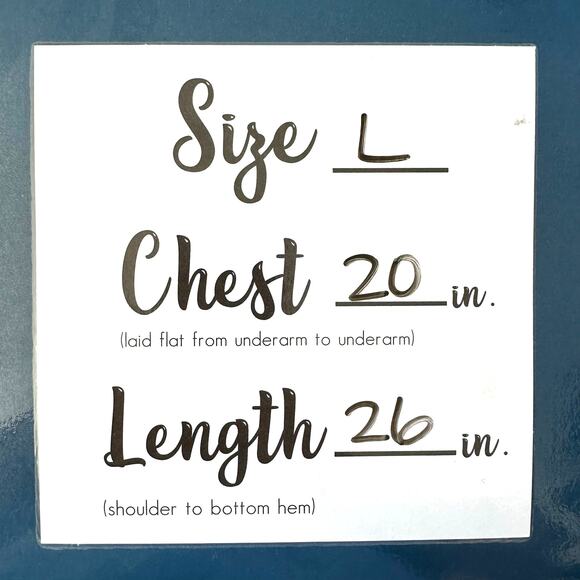 Size L
Chest 20 in.
(laid flat from underarm to underarm)
Length 26 in.
(shoulder to bottom hem)